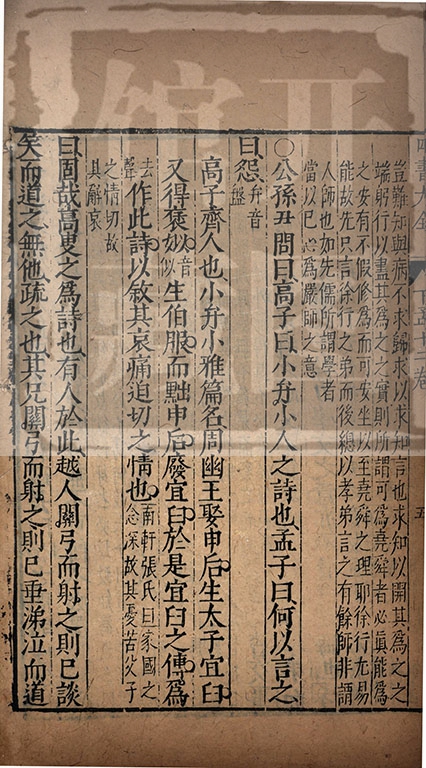 四書大全
五
豈難知與病不求歸求以求知言也求知以開其為之之
端躬行以盡其為之之實則所謂可為堯舜者必真能為
之安有不假修為而可安坐以至堯舜之理耶徐行尤易
能故先只言徐行之弟而後總以孝弟言之有餘師非謂
人師也如先儒所謂學者
當以已心為嚴師之意
○公孫丑問曰高子曰小弁小人之詩也孟子曰何以言之
曰怨弁音盤
高子齊人也小弁小雅篇名周幽王娶申后生太子宜臼
又得褒姒音似生伯服而黜申后廢宜臼於是宜臼之傅為
去聲作此詩以敘其哀痛迫切之情也南軒張氏曰家國之念深故其憂苦父子
之情切故其辭哀
曰固哉高叟之為詩也有人於此越人關弓而射之則已談
笑而道之無他疏之也其兄關弓而射之則已垂涕泣而道